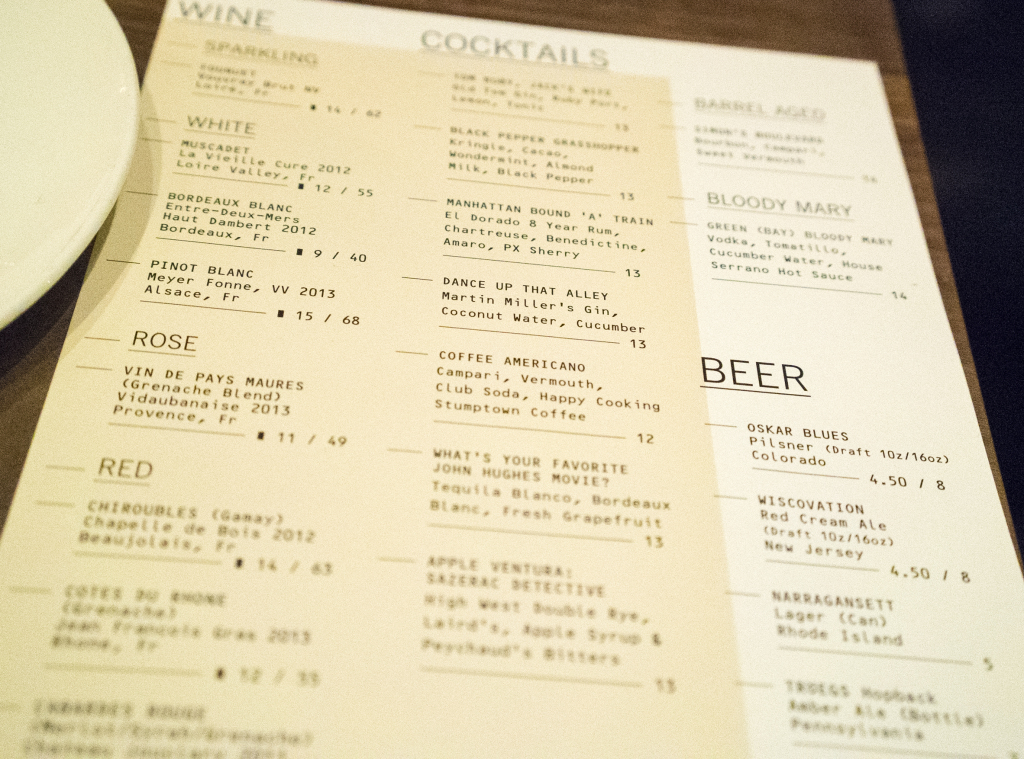 WINE
SPARKLING
Vouvray Brut NV
Loire, Fr
14 / 62
WHITE
MUSCADET
La Vieille Cure 2012
Loire Valley, Fr
12 / 55
BORDEAUX BLANC
Entre-Deux-Mers
Haut Dambert 2012
Bordeaux, Fr
9 / 40
PINOT BLANC
Meyer Fonne, VV 2013
Alsace, Fr
15 / 68
ROSE
VIN DE PAYS MAURES
(Grenache Blend)
Vidaubanaise 2013
Provence, Fr
11 / 49
RED
CHIROUBLES (Gamay)
Chapelle de Bois 2012
Beaujolais, Fr
14 / 63
COTES DU RHONE
(Grenache)
Jean Francois Gras 2013
Rhone, Fr
12 / 55
COCKTAILS
Old Tom Gin, Ruby Port,
Lemon, Tonic
13
BLACK PEPPER GRASSHOPPER
Kringle, Cacao,
Wondermint, Almond
Milk, Black Pepper
13
MANHATTAN BOUND 'A' TRAIN
El Dorado 8 Year Rum,
Chartreuse, Benedictine,
Amaro, PX Sherry
13
DANCE UP THAT ALLEY
Martin Miller's Gin,
Coconut Water, Cucumber
13
COFFEE AMERICANO
Campari, Vermouth,
Club Soda, Happy Cooking
Stumptown Coffee
12
WHAT'S YOUR FAVORITE
JOHN HUGHES MOVIE?
Tequila Blanco, Bordeaux
Blanc, Fresh Grapefruit
13
APPLE VENTURA:
SAZERAC DETECTIVE
High West Double Rye,
Laird's, Apple Syrup &
Peychaud's Bitters
13
BARREL AGED
SIMON'S BOULEVARD
Bourbon, Campari,
Sweet Vermouth
BLOODY MARY
GREEN (BAY) BLOODY MARY
Vodka, Tomatillo,
Cucumber Water, House
Serrano Hot Sauce
14
BEER
OSKAR BLUES
Pilsner (Draft 10z/16oz)
Colorado
4.50 / 8
WISCOVATION
Red Cream Ale
(Draft 10z/16oz)
New Jersey
4.50 / 8
NARRAGANSETT
Lager (Can)
Rhode Island
5
TROEGS Hopback
Amber Ale (Bottle)
Pennsylvania